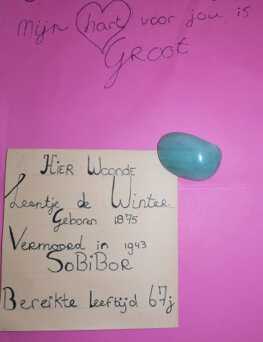 Mijn hart voor jou is
GROOT
HIER WOONDE
Leentje de Winter
Geboren 1875
Vermoord in 1943
SOBIBOR
Bereikte leeftijd 67j